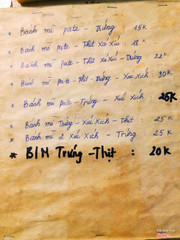 * Bánh mì pate - Trứng 15K
* Bánh mì pate - Thịt Xá Xíu 18K
* Bánh mì pate - Thịt Xá Xíu - Trứng 22K
* Bánh mì pate - Thịt - Trứng - Xúc Xích - 30K
* Bánh mì pate - Trứng - Xúc Xích 25K
* Bánh mì Trứng - Xúc Xích - Thịt 25K
* Bánh mì 2 Xúc Xích - Trứng 25K
* BIM Trứng - Thịt : 20K